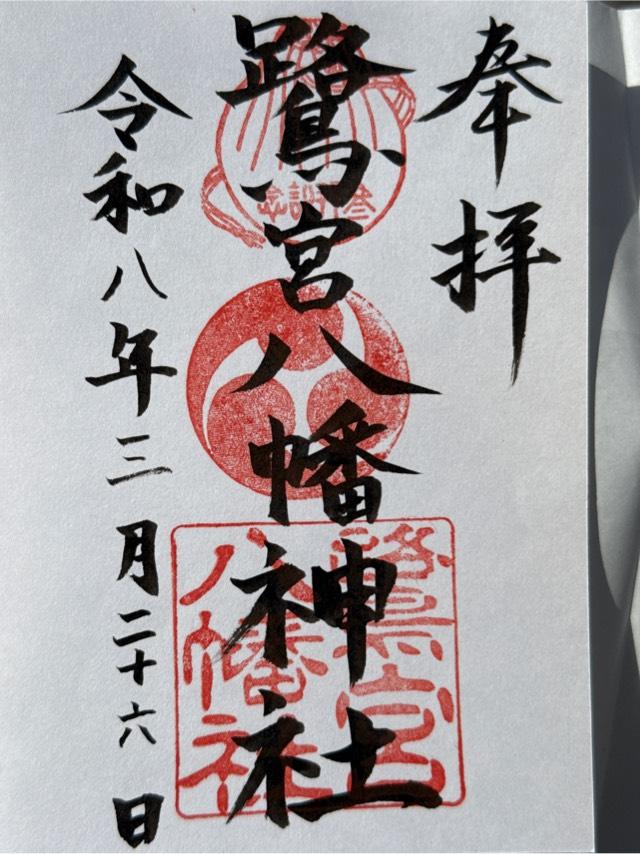 奉拝
鷺宮八幡神社
令和八年三月二十六日
鷺宮
八幡社